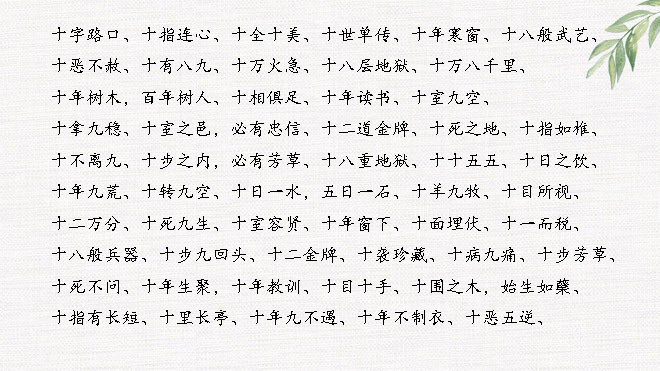 十字路口、十指连心、十全十美、十世单传、十年寒窗、十八般武艺、
十恶不赦、十有八九、十万火急、十八层地狱、十万八千里、
十年树木，百年树人、十相俱足、十年读书、十室九空、
十拿九稳、十室之邑，必有忠信、十二道金牌、十死之地、十指如椎、
十不离九、十步之内，必有芳草、十八重地狱、十十五五、十日之饮、
十年九荒、十转九空、十日一水，五日一石、十羊九牧、十目所视、
十二万分、十死九生、十室容贤、十年窗下、十面埋伏、十一而税、
十八般兵器、十步九回头、十二金牌、十袭珍藏、十病九痛、十步芳草、
十死不问、十年生聚，十年教训、十目十手、十围之木，始生如蘖、
十指有长短、十里长亭、十年九不遇、十年不制衣、十恶五逆、